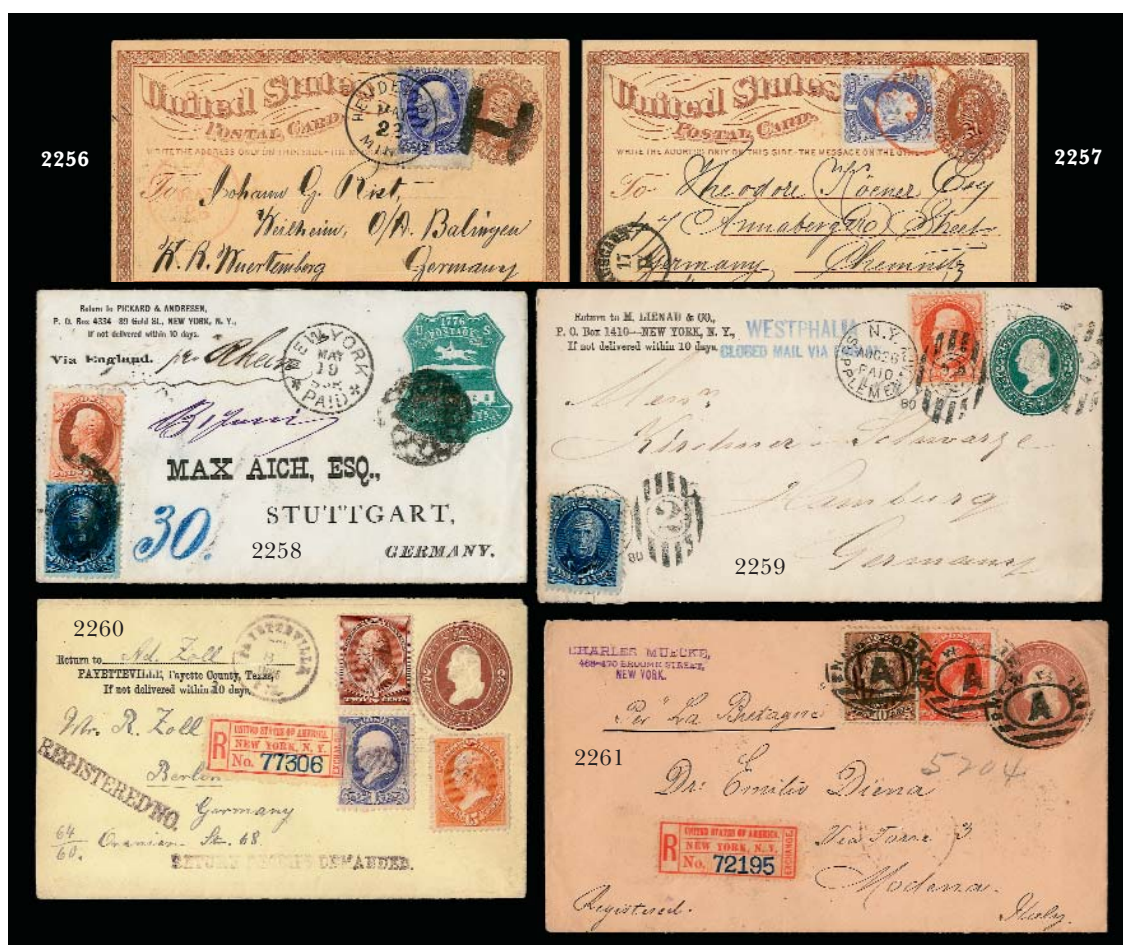 2256
United States
POSTAL CARD
WRITE THE ADDRESS ONLY ON THIS SIDE - THE MESSAGE ON THE
HENDERSON
MAY
23
MIN
T
To Johann G. Rist,
Weilheim, O/A. Balingen
K. R. Wuertemberg Germany
2257
United States
POSTAL CARD
WRITE THE ADDRESS ONLY ON THIS SIDE - THE MESSAGE ON THE
To Theodore Koener Esq
47 Annabergre Street
Germany Chemnitz
17
Return to PICKARD & ANDRESEN,
P. O. Box 4334 89 Gold St., NEW YORK, N. Y.,
If not delivered within 10 days.
Via England. pr Rhein
NEW YORK
MAY
19
PAID
1776
U.S.
POSTAGE
MAX AICH, ESQ.,
STUTTGART,
GERMANY.
30.
2258
Return to M. LIENAU & CO.,
P. O. Box 1410—NEW YORK, N. Y.,
If not delivered within 10 days.
WESTPHALIA
CLOSED MAIL VIA
N.Y.
AUG 28
PAID
80
2
80
Messrs
Kirchner & Schwarze
Hamburg
Germany
2259
2260
Return to Ad. Zoll
FAYETTEVILLE, Fayette County, Texas,
If not delivered within 10 days.
FAYETTEVILLE
Mr. R. Zoll
Berlin
Germany
Oranien St. 68.
64
60.
REGISTERED NO.
RETURN RECEIPT DEMANDED.
R
UNITED STATES OF AMERICA.
NEW YORK, N. Y.
No. 77306
EXCHANGE
CHARLES MUECKE,
468-470 BROOME STREET,
NEW YORK.
Per "La Bretagne"
A
A
A
2261
5204
Dr. Emilio Diena
Via Torre 3
Modena.
Italy.
Registered.
R
UNITED STATES OF AMERICA.
NEW YORK, N. Y.
No. 72195
EXCHANGE